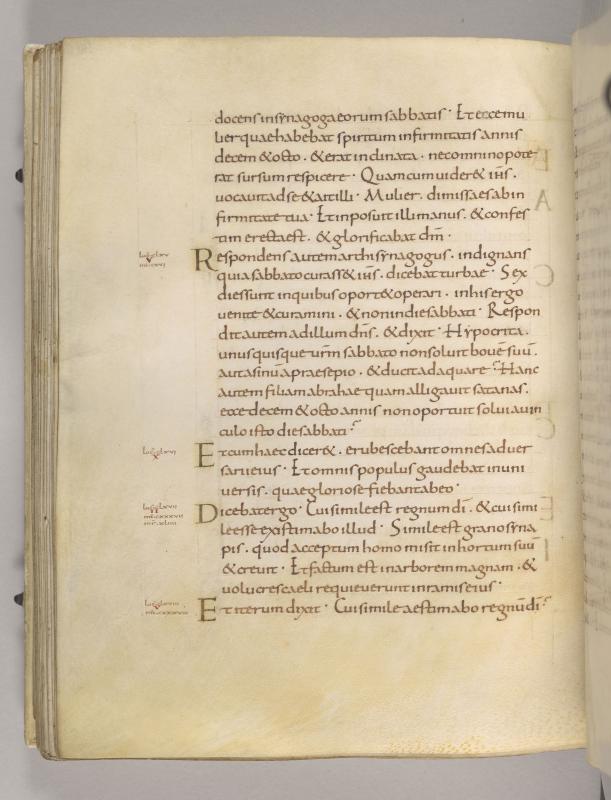 docens in synagoga eorum sabbatis · Et ecce mu
lier quae habebat spiritum infirmitatis annis
decem & octo · & erat inclinata · nec omnino pote
rat sursum respicere · Quam cum uider& ih̄s ·
uocauit ad se & ait illi · Mulier · dimissa es ab in
firmitate tua · Et inposuit illi manus · & confes
tim erecta est · & glorificabat dm̄ ·
Respondens autem archisynagogus · indignans
quia sabbato curass& ih̄s · dicebat turbae · Sex
dies sunt in quibus oport& operari · in his ergo
uenite & curamini · & non in die sabbati · Respon
dit autem ad illum dn̄s · & dixit · Hypocrita ·
unusquisque ur̄m sabbato non soluit bouē suū ·
aut asinū a praesepio · & ducit adaquare · Hanc
autem filiam abrahae quam alligauit satanas ·
ecce decem & octo annis non oportuit solui a uin
culo isto die sabbati ·
Et cum haec dicer& · erubescebant omnes aduer
sarii eius · Et omnis populus gaudebat in uni
uersis · quae gloriose fiebant ab eo ·
Dicebat ergo · Cui simile est regnum dī · & cui simi
le esse existimabo illud · Simile est grano syna
pis · quod acceptum homo misit in hortum suū
& creuit · Et factum est in arborem magnam · &
uolucres caeli requieuerunt in ramis eius ·
Et iterum dixit · Cui simile aestimabo regnū dī ·